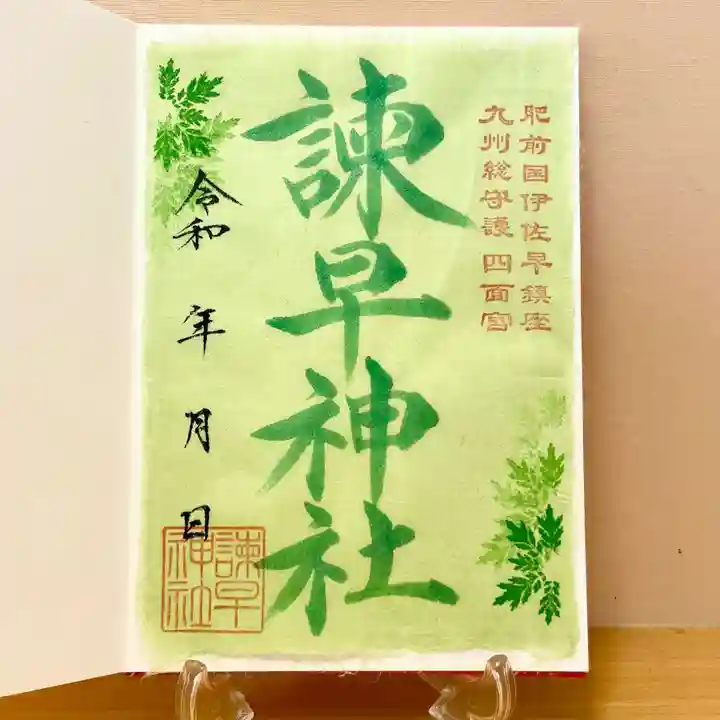 肥前国伊佐早鎮座
九州総守護 四面宮
諫早神社
令和 年 月 日
諫早
神社